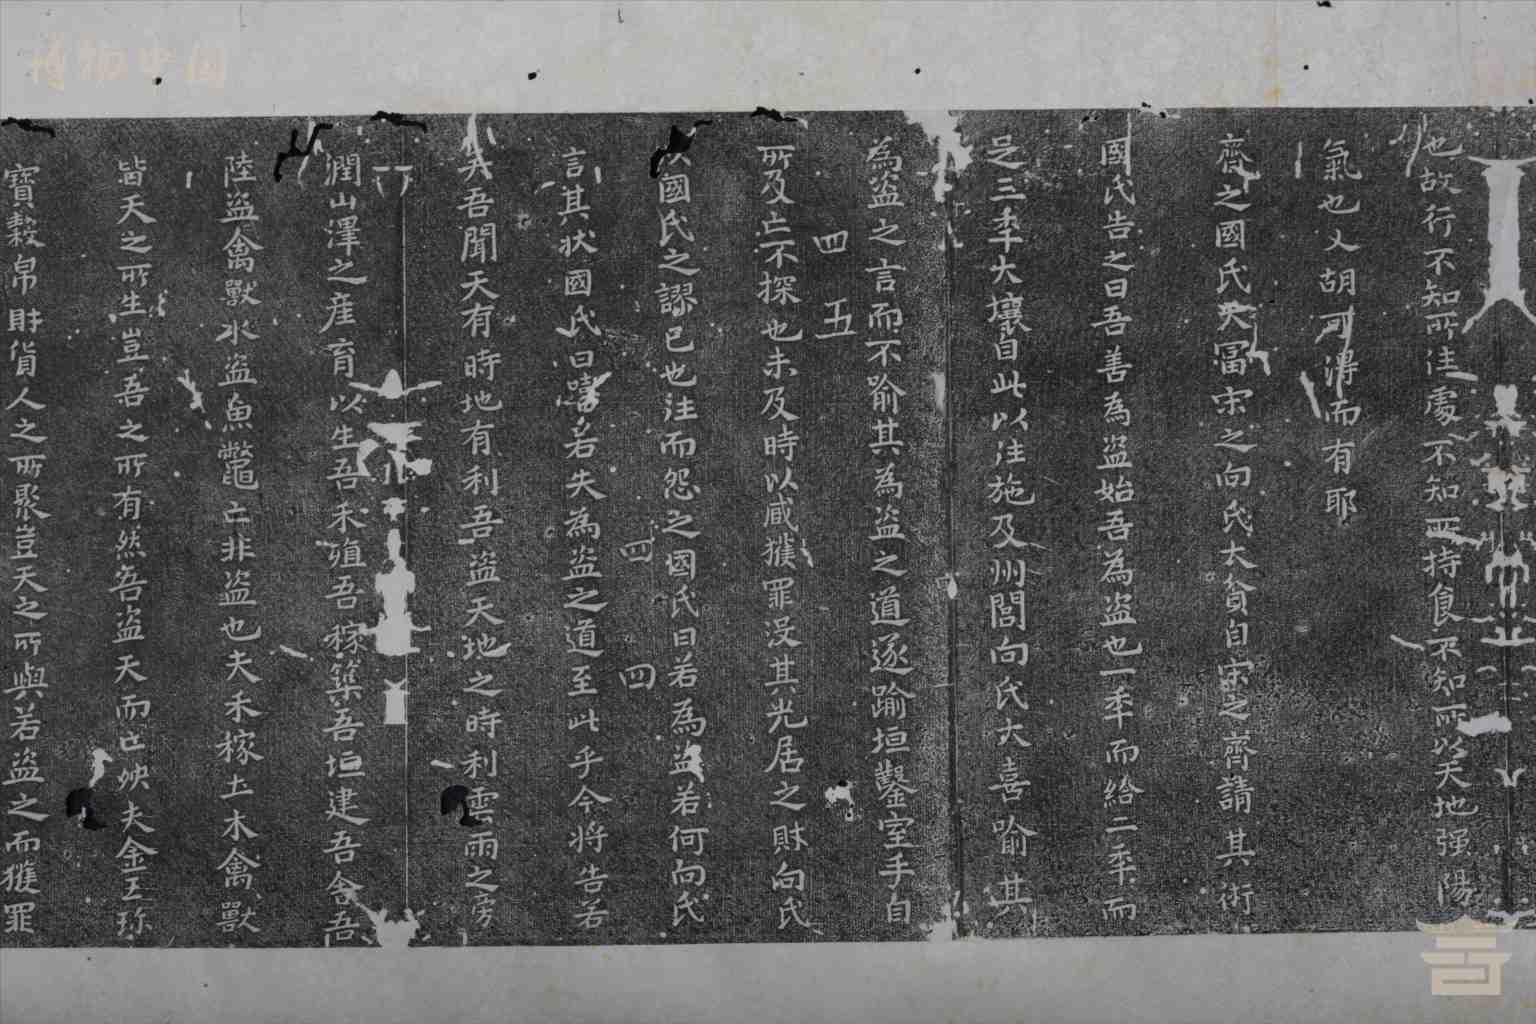 也故行不知所往處不知所持食不知所以天地强陽
氣也又胡可得而有耶
齊之國氏大冨宋之向氏大貧自宋之齊請其術
國氏告之曰吾善為盗始吾為盗也一年而給二年而
足三年大壤自此以往施及州閭向氏大喜喻其
為盗之言而不喻其為盗之道遂踰垣鑿室手目
四五
所及亡不探也未及時以贓獲罪没其先居之財向氏
以國氏之謬已也往而怨之國氏曰若為盗若何向氏
四四
言其狀國氏曰嘻若失為盗之道至此乎今將告若
矣吾聞天有時地有利吾盗天地之時利雲雨之滂
潤山澤之産育以生吾禾殖吾稼築吾垣建吾舍吾
陸盗禽獸水盗魚鼈亡非盗也夫禾稼土木禽獸
皆天之所生豈吾之所有然吾盗天而亡殃夫金玉珎
寶穀帛財貨人之所聚豈天之所與若盗之而獲罪
博物中国